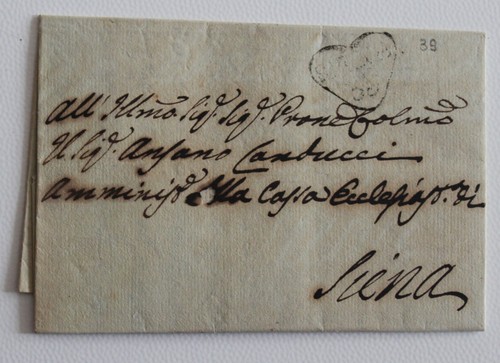 39
All' Illmo. Sig. Sig. Prone Colmo
Il Sig. Ansano Carducci
Amminist. della Cassa Ecclesiast. di
Siena